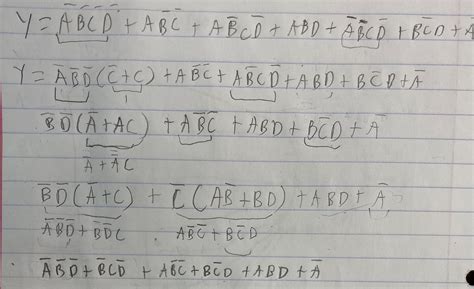 Y = A̅B̅C̅D̅ + AB̅C̅ + AB̅CD̅ + ABD + A̅B̅CD̅ + BC̅D + A
Y = A̅B̅D̅(C̅+C) + AB̅C̅ + AB̅CD̅ + ABD + BC̅D + A̅
B̅D̅(A̅+AC) + AB̅C̅ + ABD + BC̅D + A̅
A̅ + A̅̅C
B̅D̅(A̅+C) + C̅(AB̅+BD) + ABD + A̅
A̅B̅D̅ + B̅D̅C AB̅C̅ + BC̅D
A̅B̅D̅ + B̅CD̅ + AB̅C̅ + BC̅D + ABD + A̅